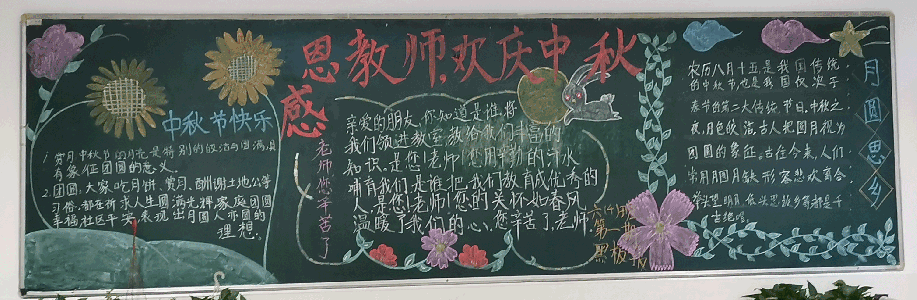 感恩教师,欢庆中秋
中秋节快乐
1.赏月:中秋节的月亮是特别的皎洁与圆满,具
有象征团圆的意义。
2.团圆:大家吃月饼、赏月、酬谢土地公等
习俗,都在祈求人生圆满光辉家庭团圆
幸福社区平安,表现出月圆人亦圆的
理想。
老师您辛苦了
亲爱的朋友,你知道是谁将
我们领进教室教给我们丰富的
知识。是您!老师!您用辛勤的汗水
哺育我们是谁把我们教育成优秀的
人,是您!老师!您的关怀如春风,
温暖了我们的心,您辛苦了,老师.
第一期
黑板报
农历八月十五是我国传统
的中秋节,也是我国仅次于
春节的第二大传统节日,中秋之
夜,月色皎洁,古人把圆月视为
团圆的象征,古往今来,人们
常用月圆月缺形容悲欢离合,
举头望明月,低头思故乡
月圆思乡